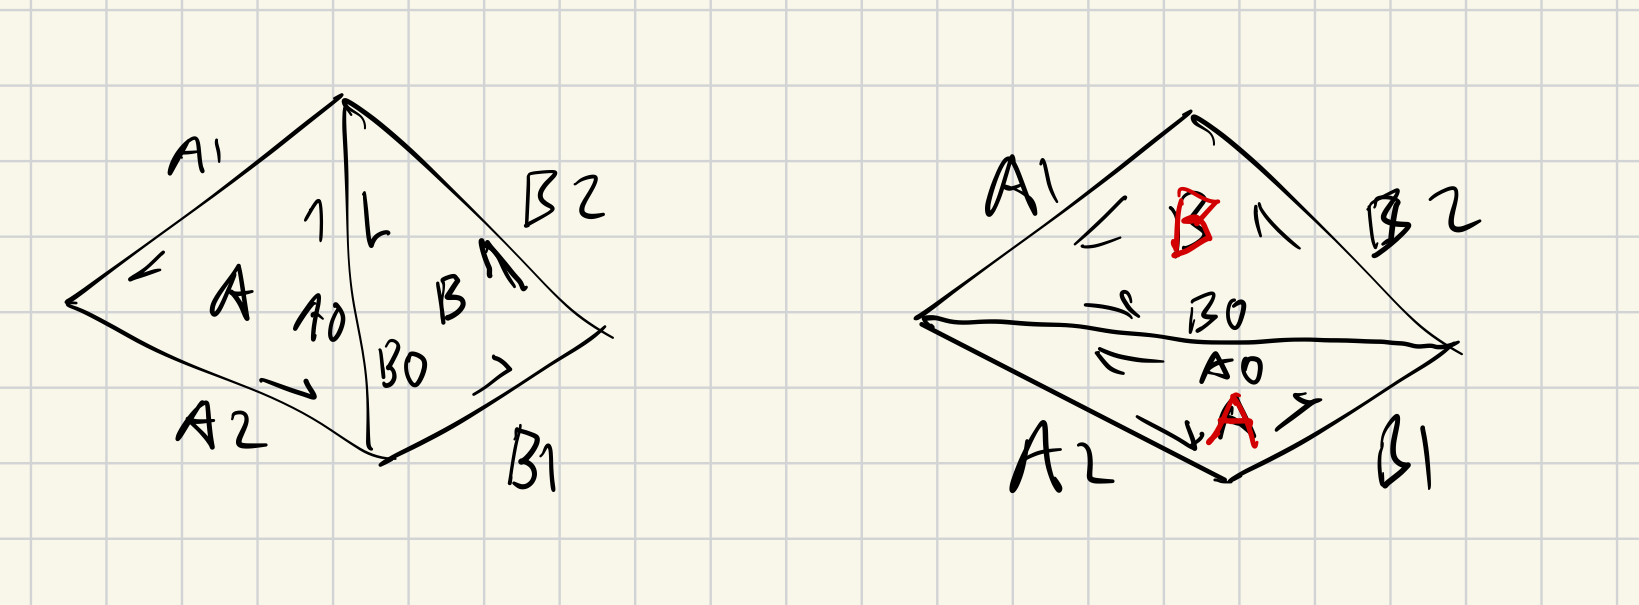 A1
B2
A
B
A0
B0
A2
B1
A1
B
B2
B0
A0
A
A2
B1